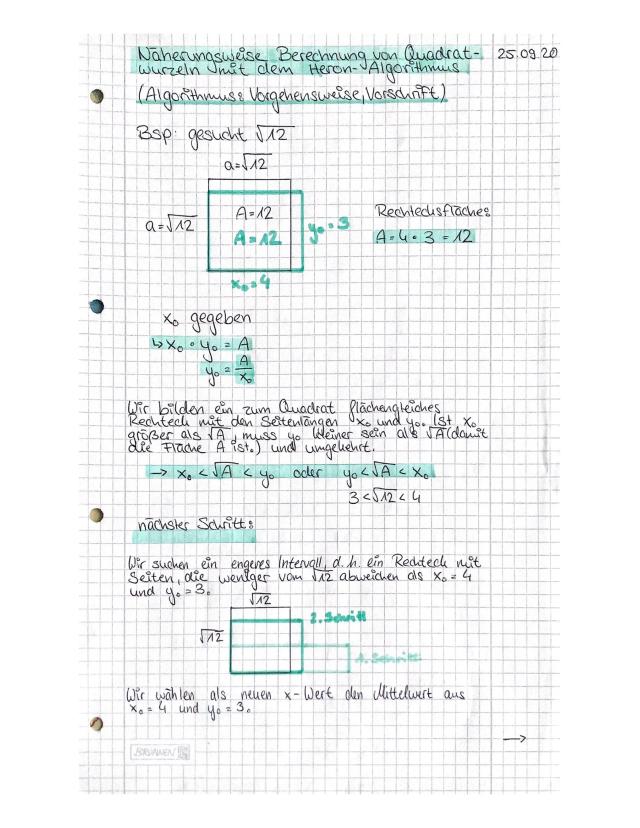 Näherungsweise Berechnung von Quadrat- 25.09.20
wurzeln mit dem Heron-Algorithmus
(Algorithmus: Vorgehensweise, Vorschrift)
Bsp: gesucht √12
a=√12
a=√12
A=12
A=12
y₀=3
x₀=4
Rechtecksfläche:
A=4·3=12
x₀ gegeben
↳ x₀ · y₀ = A
y₀ = A/x₀
Wir bilden ein zum Quadrat flächengleiches
Rechteck mit den Seitenlängen x₀ und y₀. Ist x₀
größer als √A, muss y₀ kleiner sein als √A (damit
die Fläche A ist.) und umgekehrt.
→ x₀ < √A < y₀ oder y₀ < √A < x₀
3 < √12 < 4
nächster Schritt:
Wir suchen ein engeres Intervall, d.h. ein Rechteck mit
Seiten, die weniger vom √12 abweichen als x₀ = 4
und y₀ = 3.
√12
√12
2. Schritt
1. Schritt
Wir wählen als neuen x-Wert den Mittelwert aus
x₀ = 4 und y₀ = 3.
→
BRUNNEN